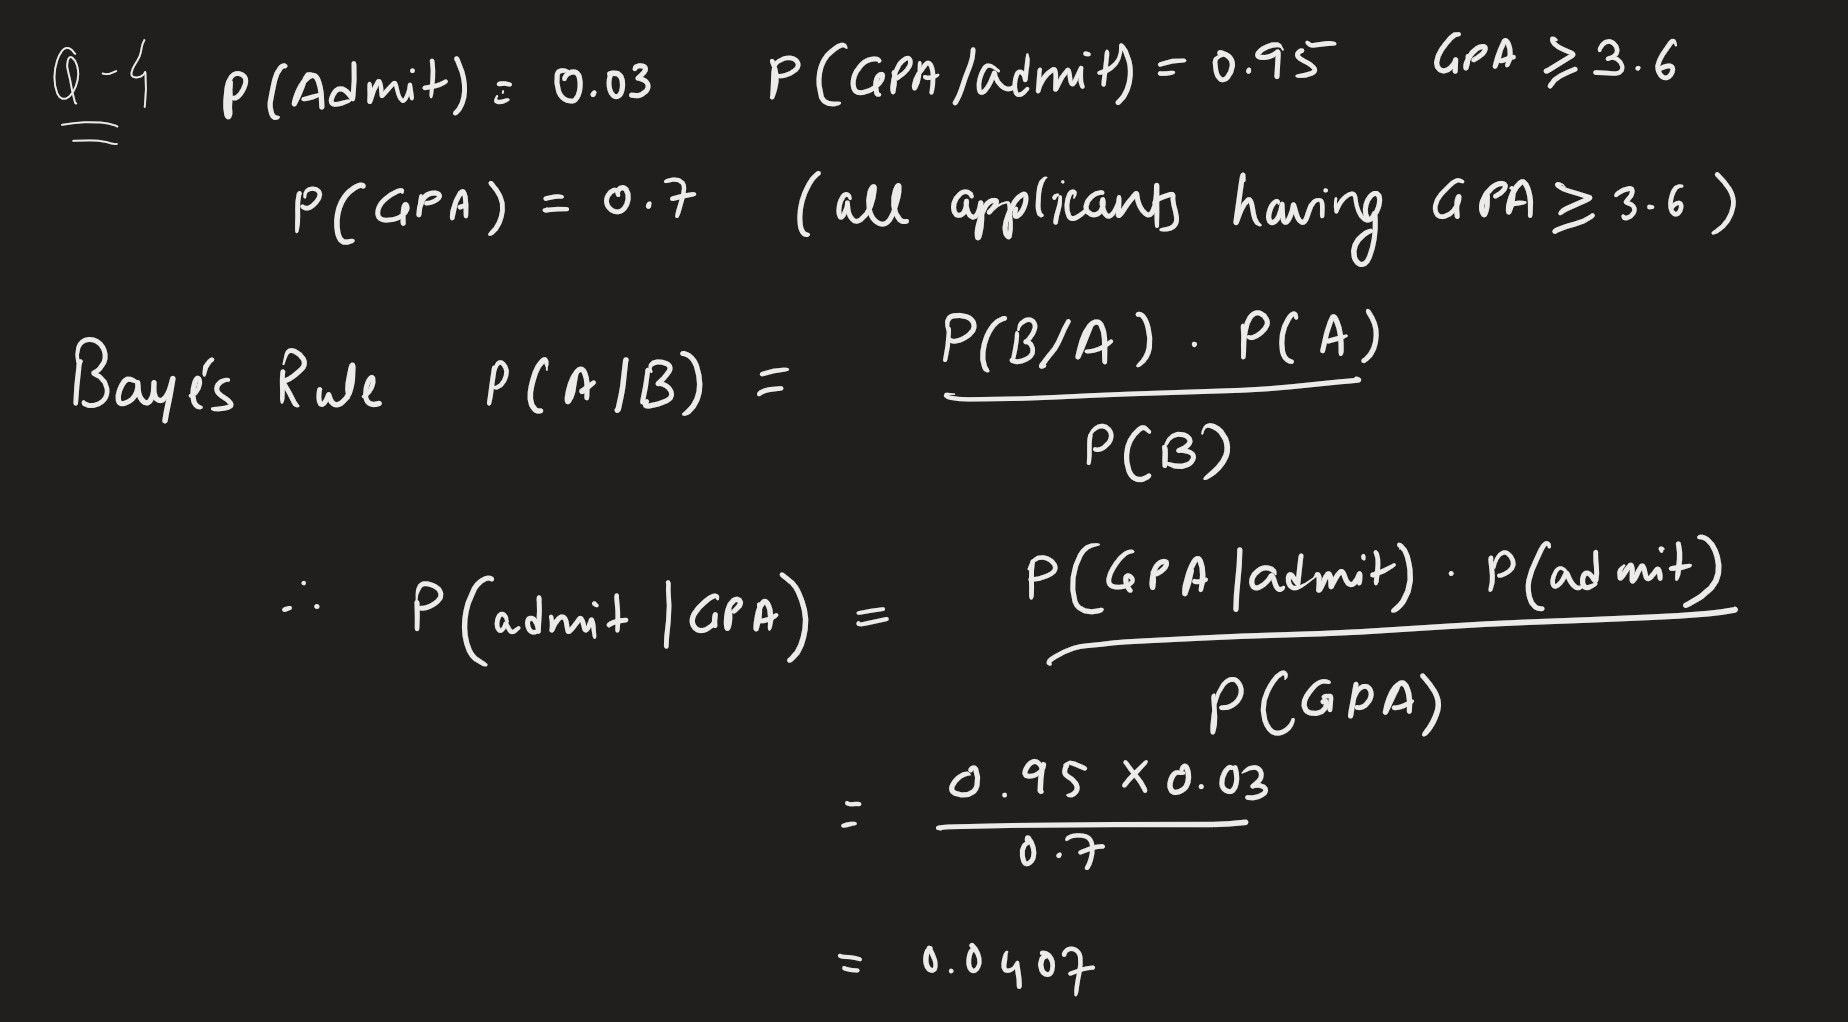 Q-4 P(Admit) = 0.03 P(GPA/admit) = 0.95 GPA ≥ 3.6
P(GPA) = 0.7 (all applicants having GPA ≥ 3.6)
P(B/A) . P(A)
Baye's Rule P(A|B) =
P(B)
P(GPA|admit) . P(admit)
∴ P(admit|GPA) =
P(GPA)
0.95 × 0.03
=
0.7
= 0.0407